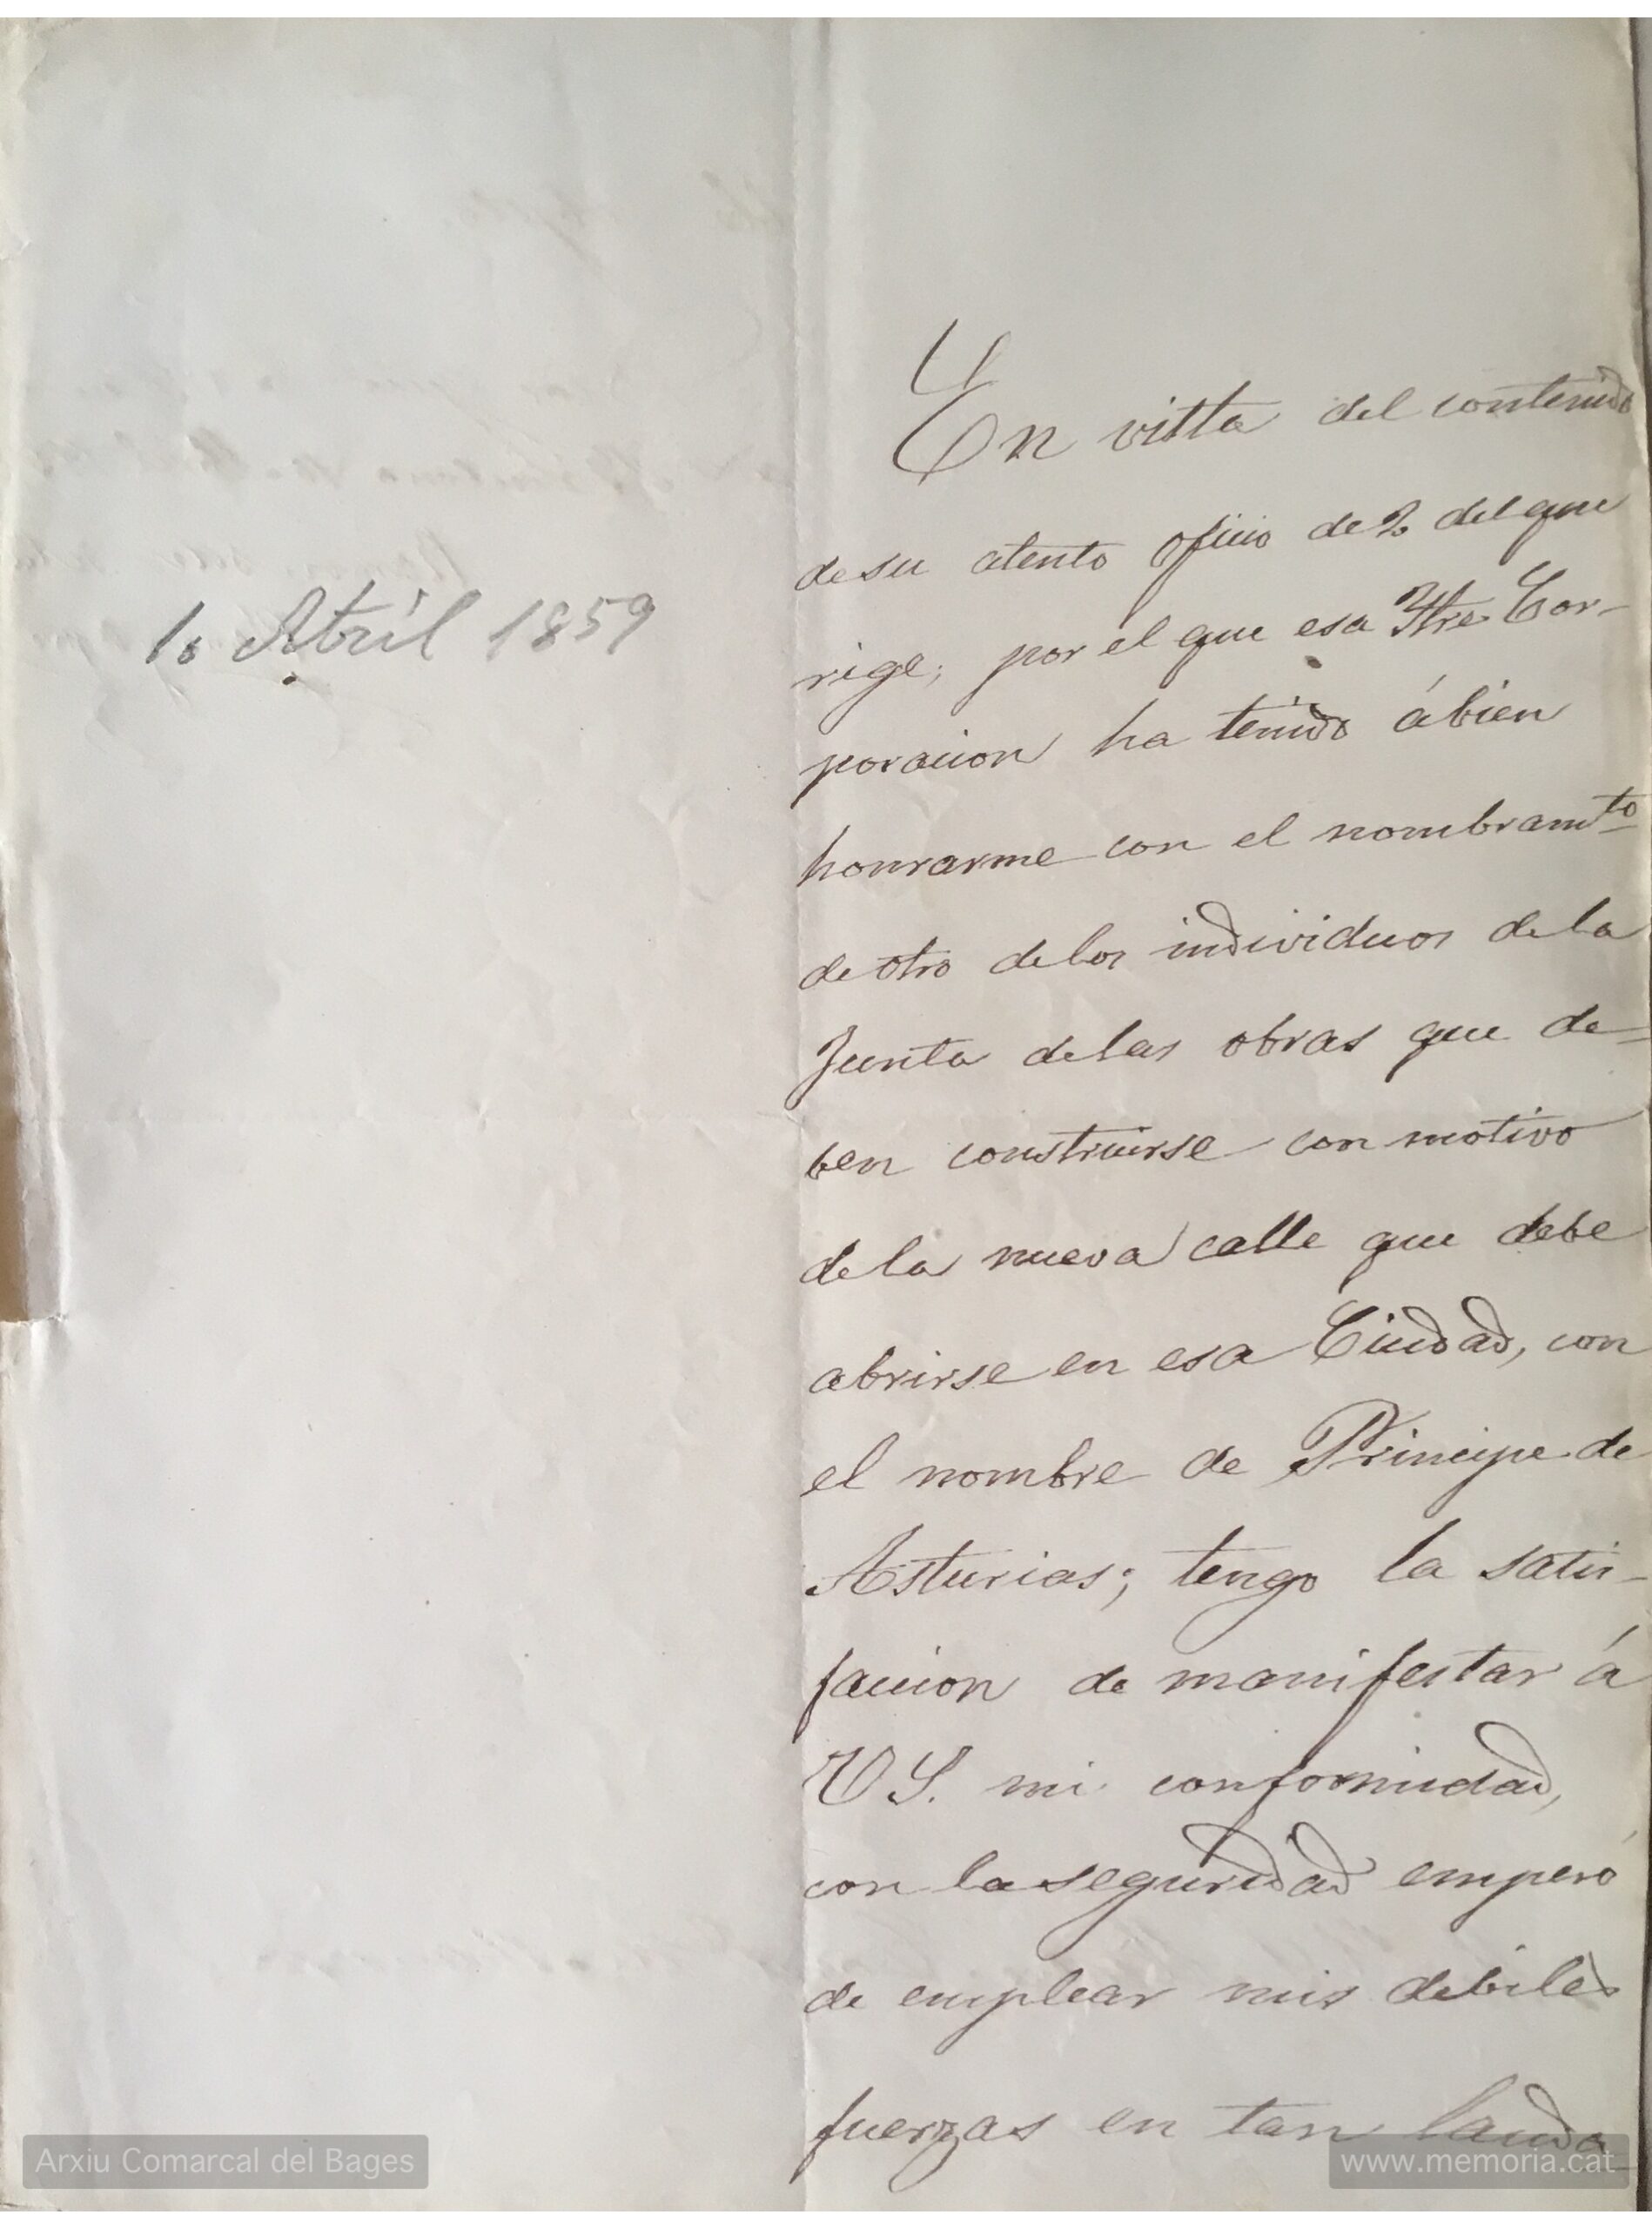 10 Abril 1859
En vista del contenido
de su atento oficio de 2 del que
rige, por el que esa Iltre Cor-
poracion ha tenido á bien
honrarme con el nombramto
de otro de los individuos de la
Junta de las obras que de-
ben construirse con motivo
de la nueva calle que debe
abrirse en esa Ciudad, con
el nombre de Principe de
Asturias; tengo la satis-
faccion de manifestar á
VS. mi conformidad,
con la seguridad emperó
de emplear mis debiles
fuerzas en tan lauda
Arxiu Comarcal del Bages
www.memoria.cat